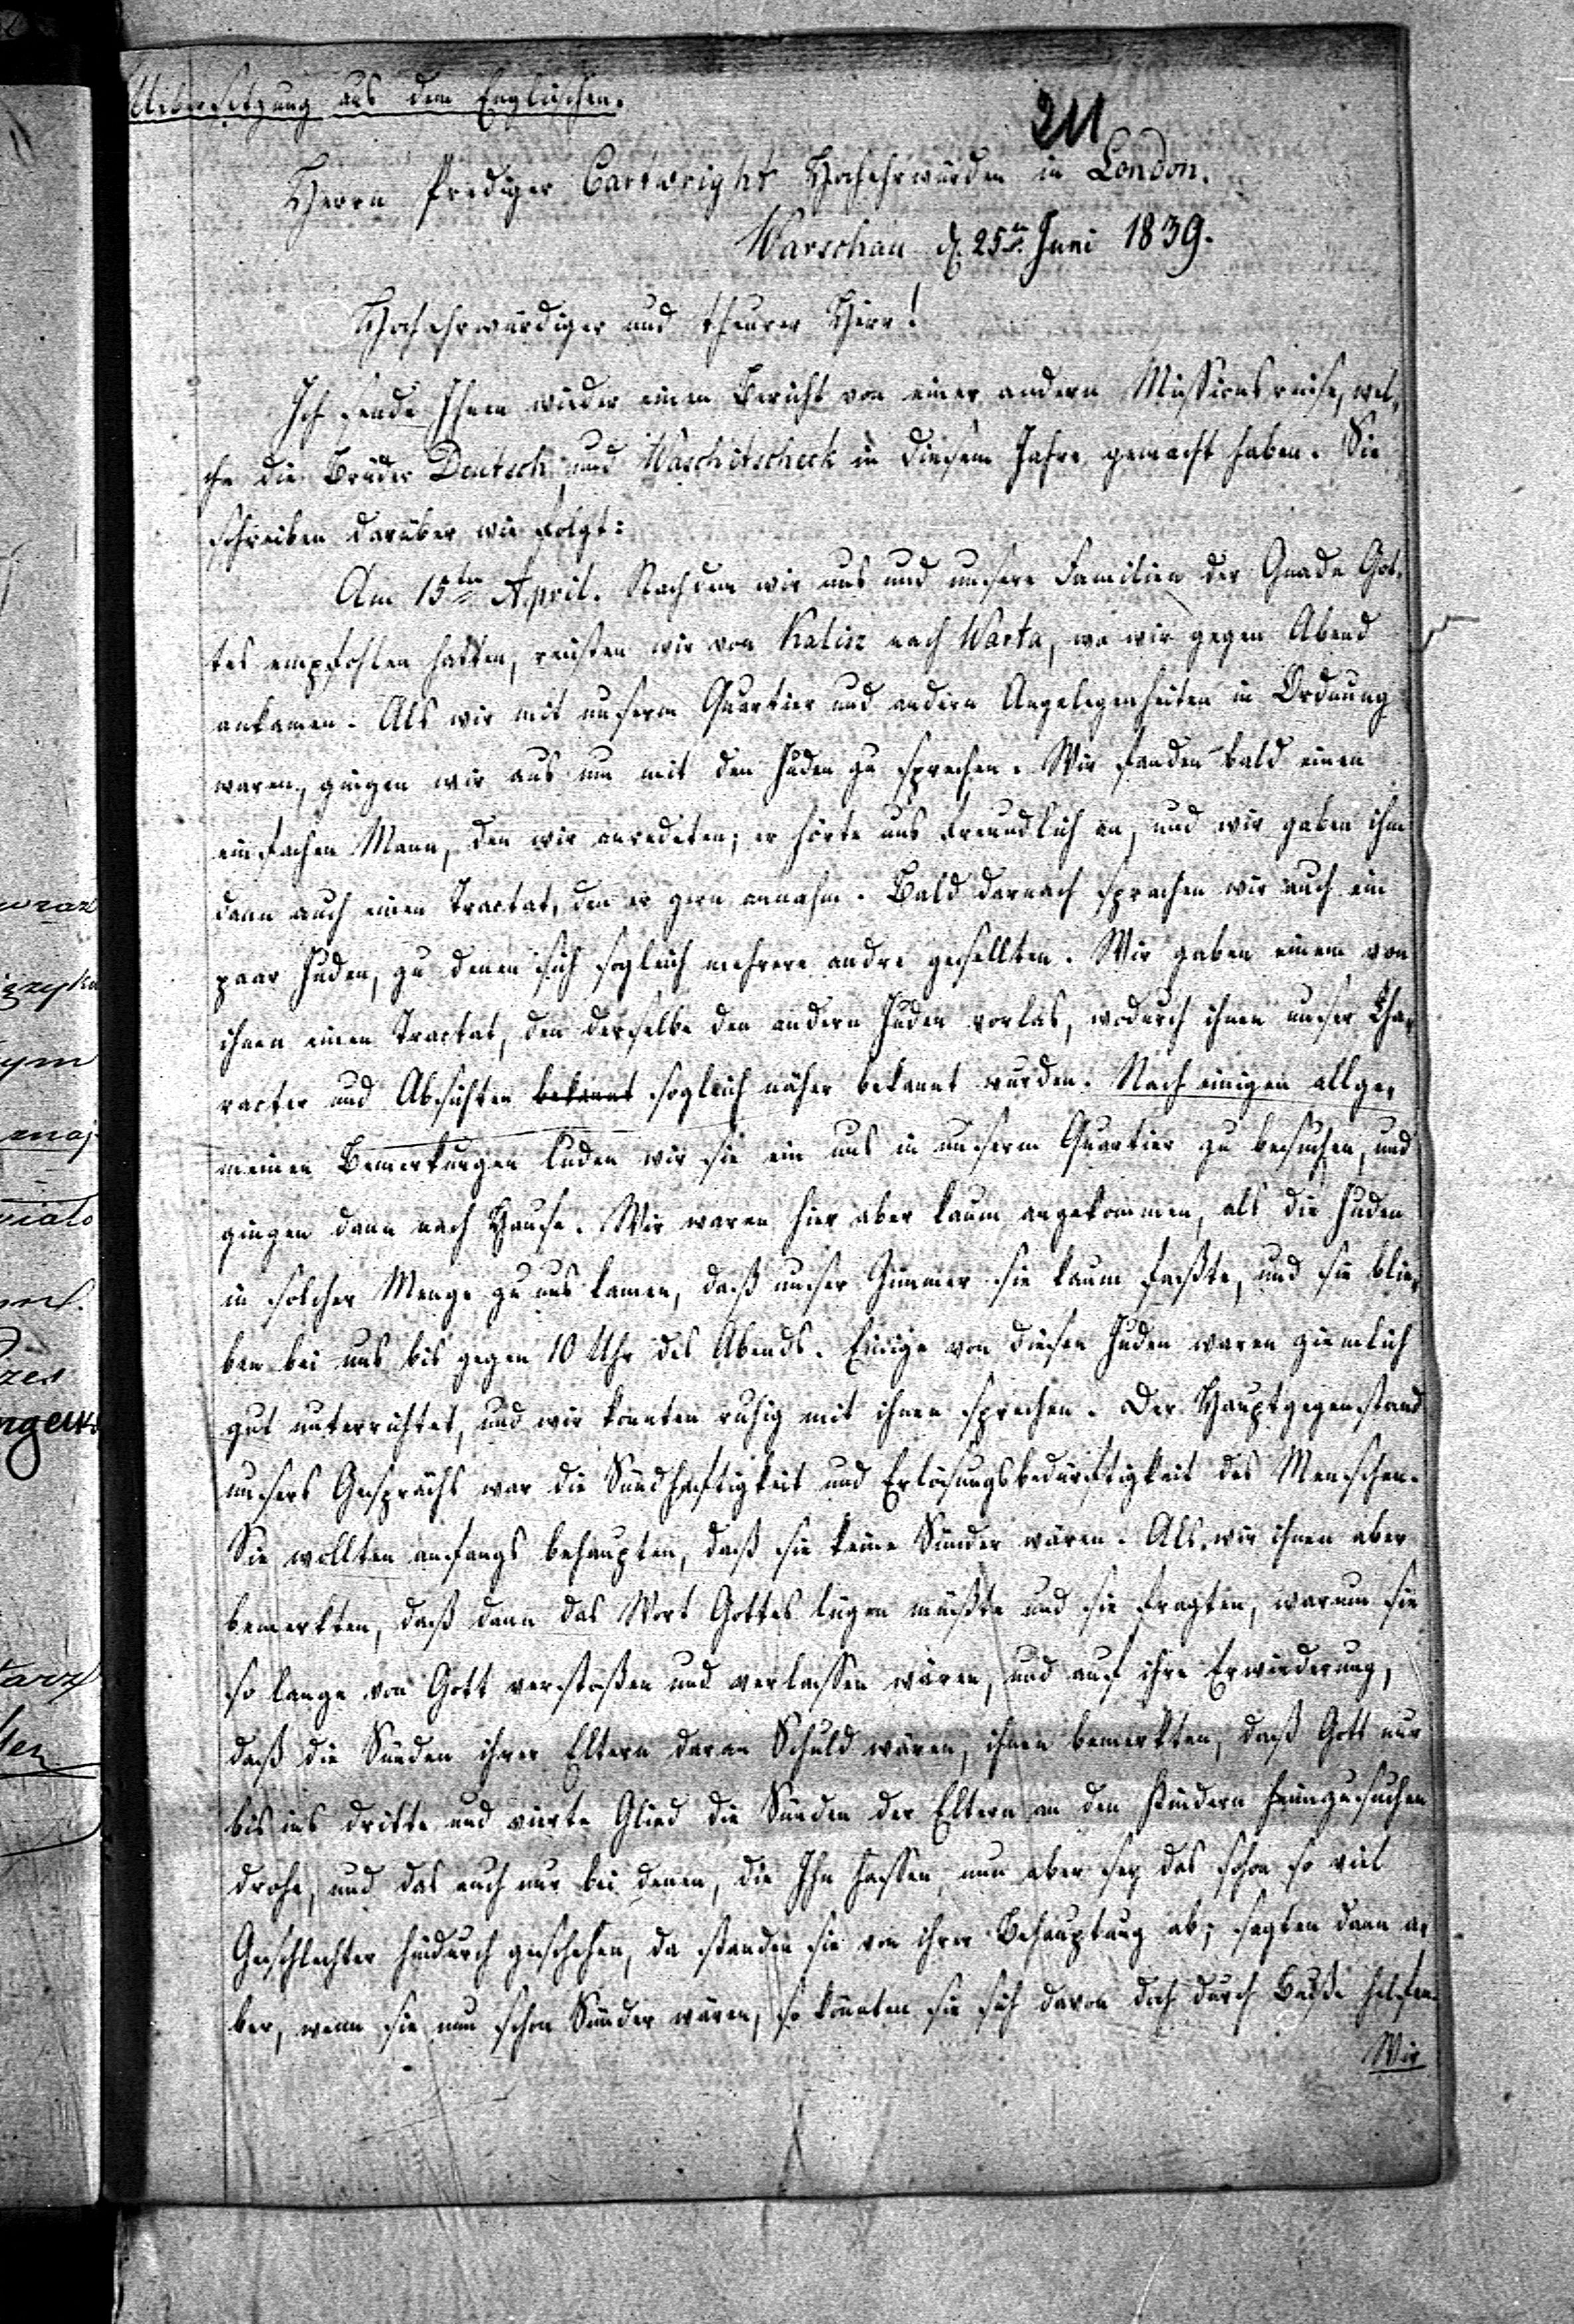 Uebersetzung aus dem Englischen.
211
Herrn Prediger Cartwright Hochehrwürden in London.
Warschau d. 25ten Juni 1839.
Hochehrwürdiger und theurer Herr!
Ich sende Ihnen wieder einen Bericht von einer andern Missionsreise, wel-
che die Brüder Deutsch und Waschitscheck in diesem Jahre gemacht haben. Sie
schreiben darüber wie folgt:
Am 15ten April. Nachdem wir uns und unsere Familien der Gnade Got-
tes empfohlen hatten, reisten wir von Kalisz nach Warta, wo wir gegen Abend
ankamen. Als wir mit unserm Quartier und andern Angelegenheiten in Ordnung
waren, gingen wir aus um mit den Juden zu sprechen. Wir fanden bald einen
einfachen Mann, den wir anredeten; er hörte uns freundlich an, und wir gaben ihm
dann auch einen Tractat, den er gern annahm. Bald darnach sprachen wir auch ein
paar Juden, zu denen sich sogleich mehrere andre gesellten. Wir gaben einem von
ihnen einen Tractat, den derselbe den andern Juden vorlas, wodurch ihnen unser Cha-
racter und Absichten bekannt sogleich näher bekannt wurden. Nach einigen allge-
meinen Bemerkungen luden wir sie ein uns in unserm Quartier zu besuchen, und
gingen dann nach Hause. Wir waren hier aber kaum angekommen, als die Juden
in solcher Menge zu uns kamen, daß unser Zimmer sie kaum faßte, und sie blie-
ben bei uns bis gegen 10 Uhr des Abends. Einige von diesen Juden waren ziemlich
gut unterrichtet, und wir konnten ruhig mit ihnen sprechen. Der Hauptgegenstand
unsers Gesprächs war die Sündhaftigkeit und Erlösungsbedürftigkeit des Menschen.
Sie wollten anfangs behaupten, daß sie keine Sünder wären. Als wir ihnen aber
bemerkten, daß dann das Wort Gottes lügen müßte und sie fragten, warum sie
so lange von Gott verstoßen und verlassen wären, und auf ihre Erwiederung,
daß die Sünden ihrer Eltern daran Schuld wären, ihnen bemerkten, daß Gott nur
bis ins dritte und vierte Glied die Sünden der Eltern an den Kindern heimzusuchen
drohe, und das auch nur bei denen, die Ihn hassen, nun aber sey das schon so viel
Geschlechter hindurch geschehen, da standen sie von ihrer Behauptung ab; sagten dann a-
ber, wenn sie nun schon Sünder wären, so könnten sie sich davon doch durch Buße helfen.
Wir